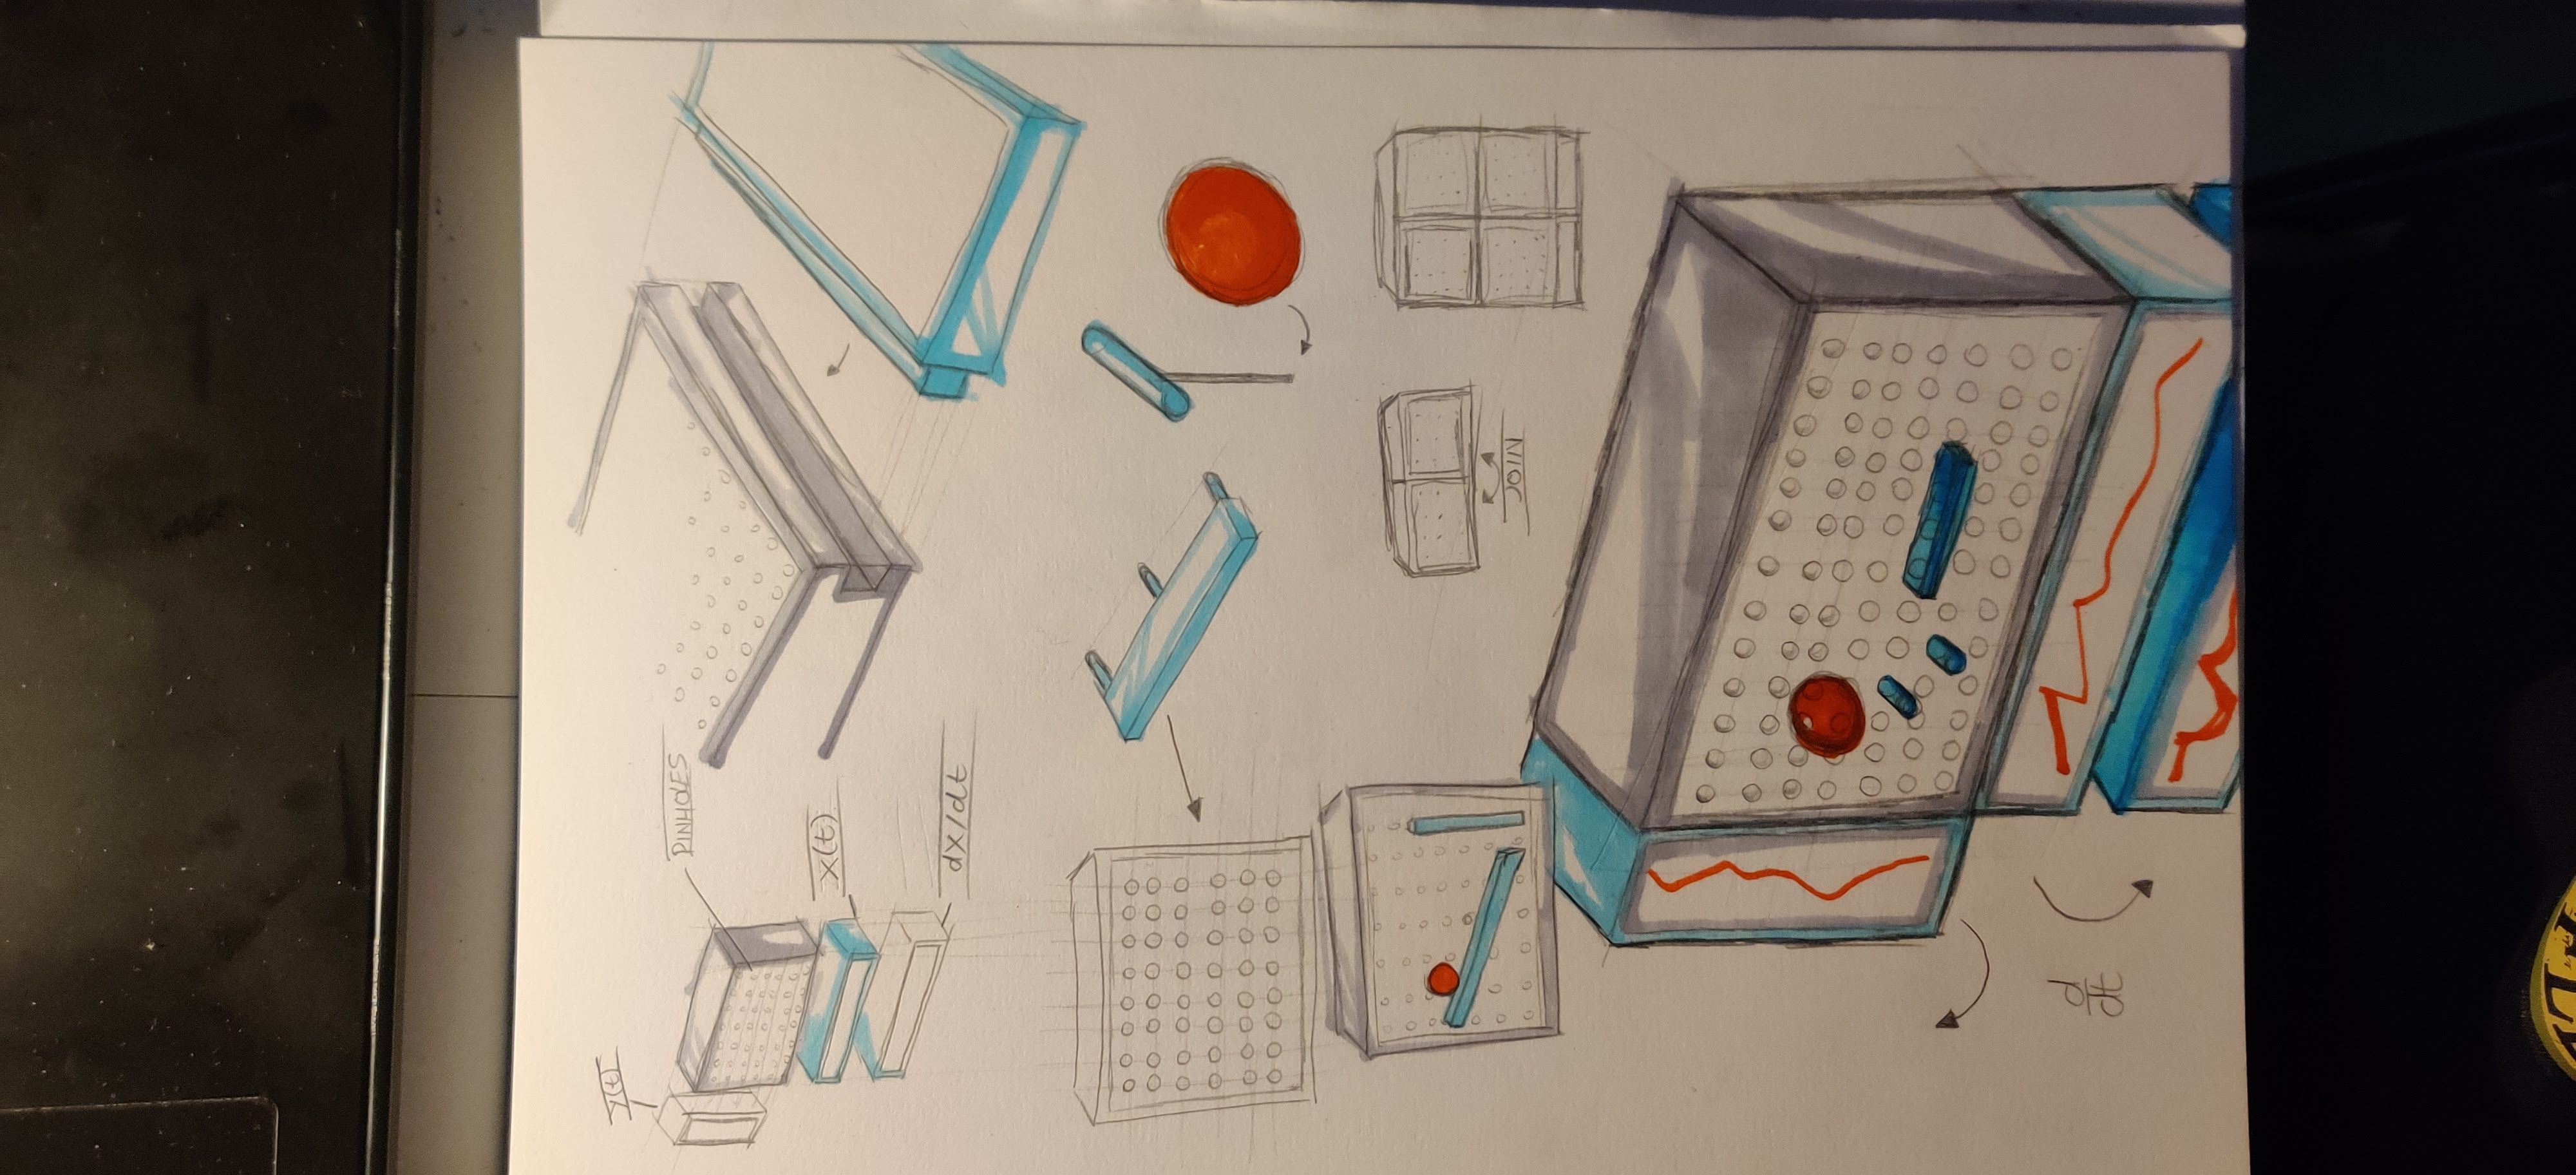 y(t)
PINHOLES
x(t)
dx/dt
JOIN
d
dt